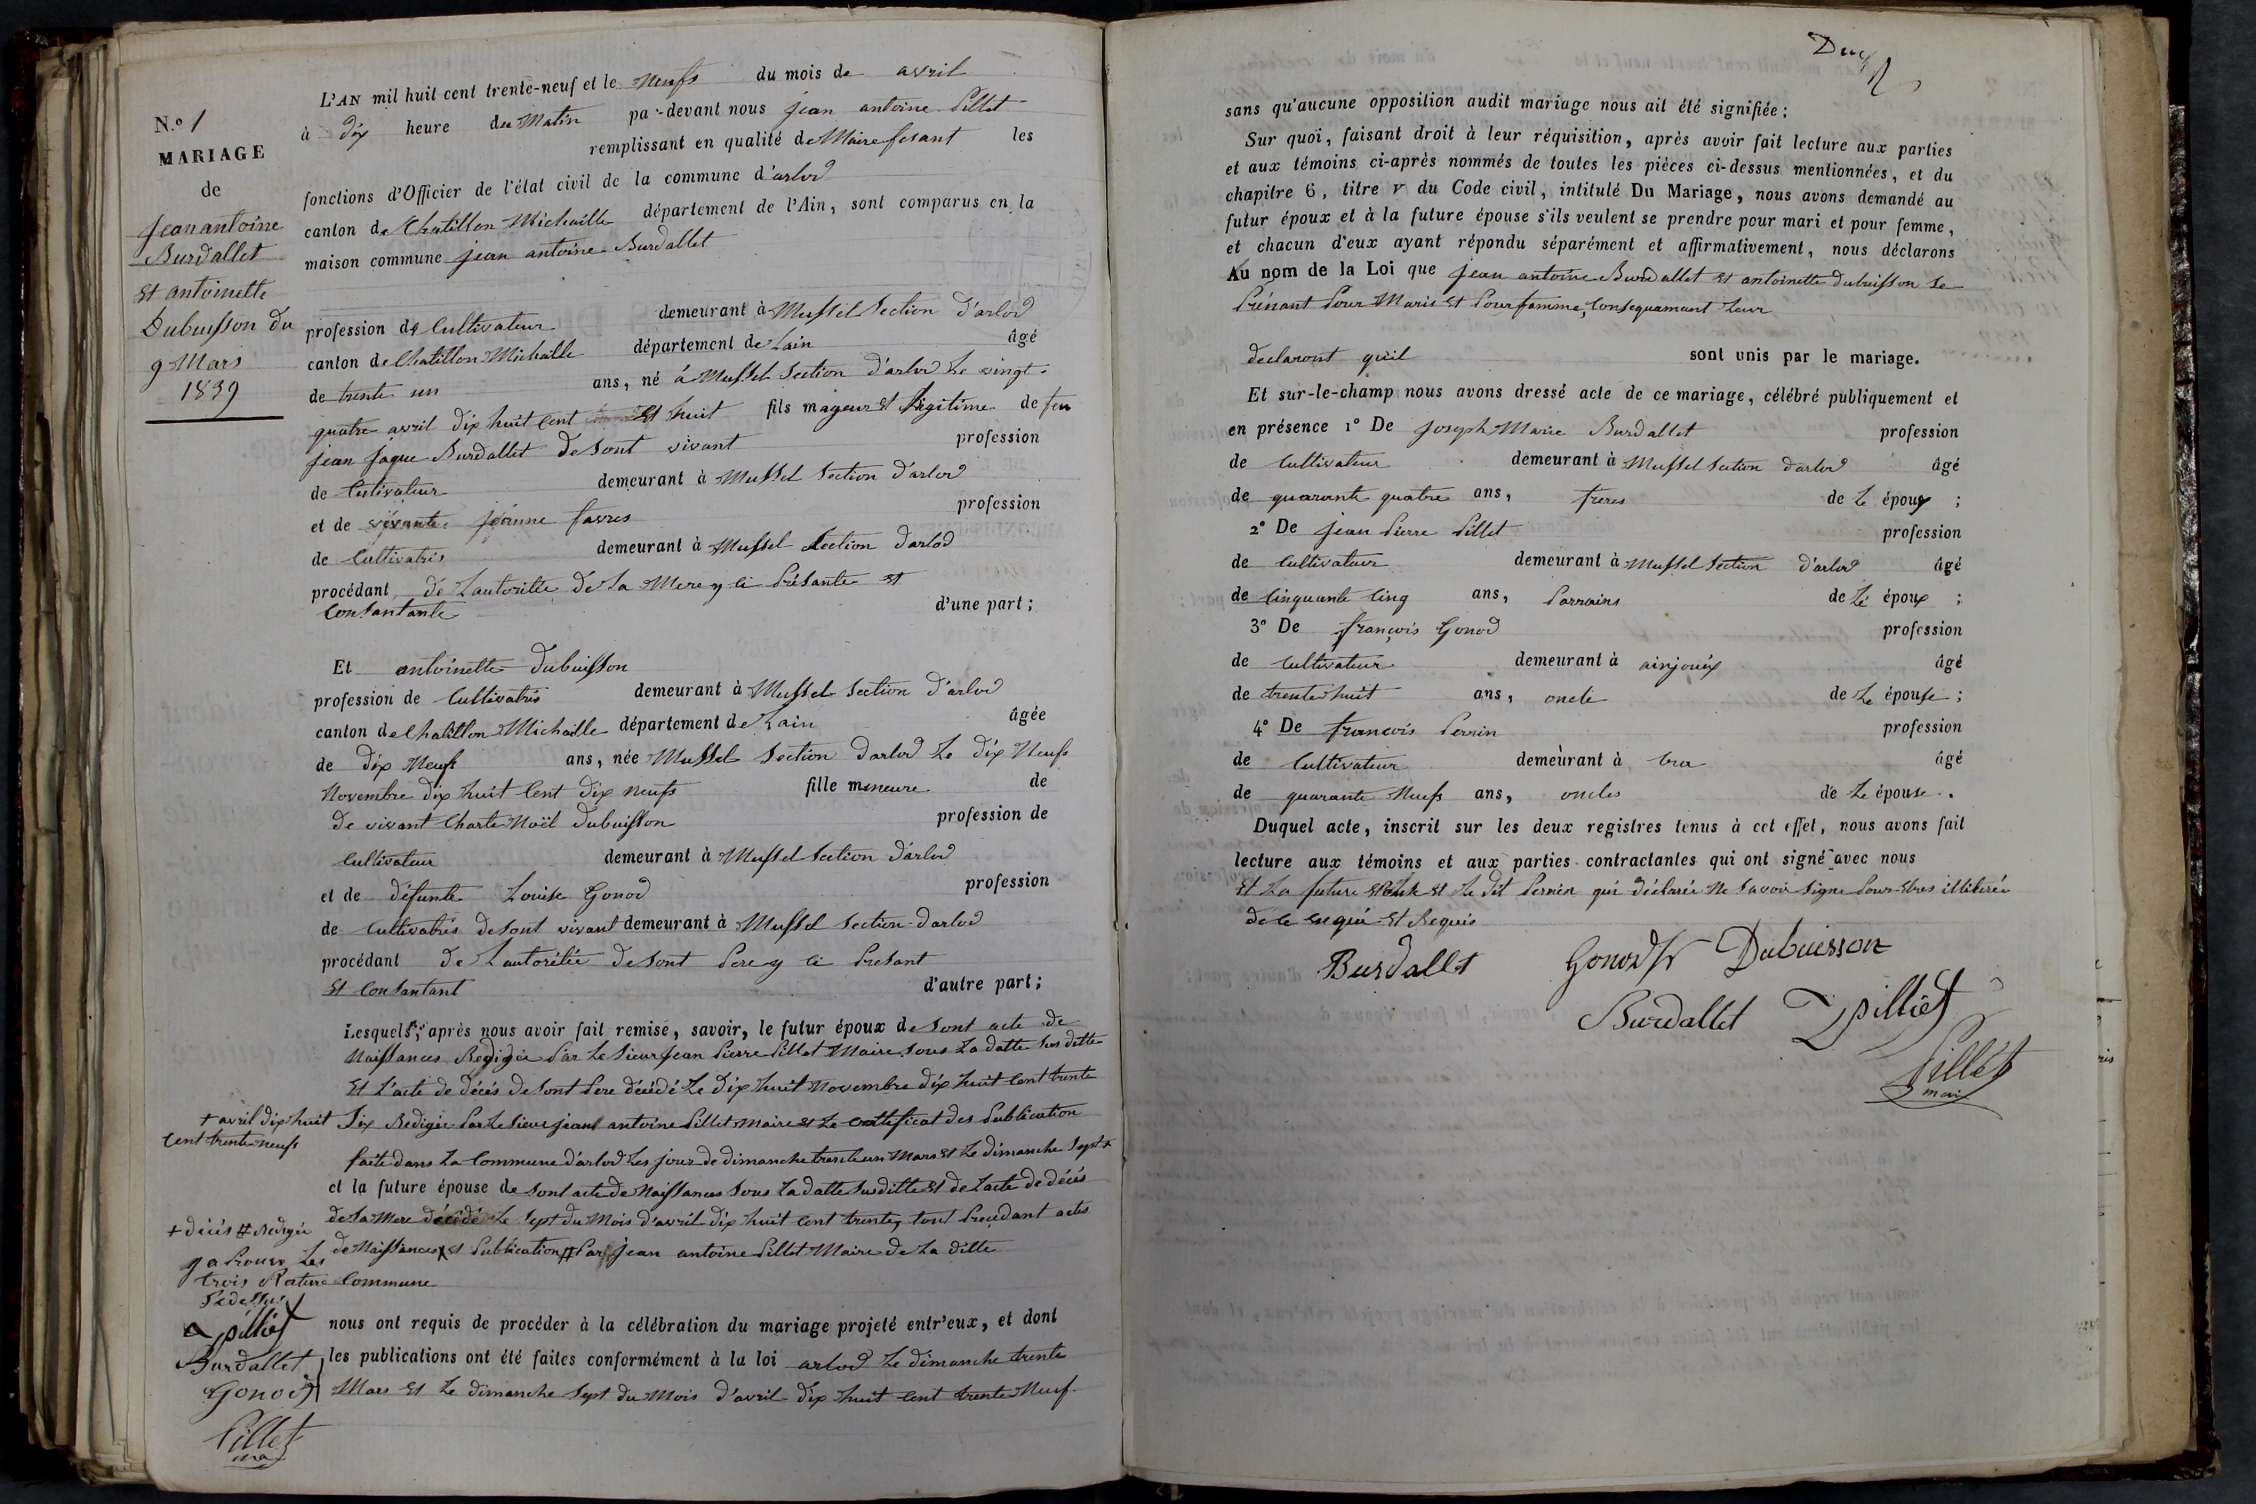 N.º 1
MARIAGE
de
jean antoine
Burdallet
Et antoinette
Dubuisson du
9 Mars
1839
L'AN mil huit cent trente-neuf et le Neufs du mois de avril
à dix heure du Matin pa-devant nous jean antoine Pillet
remplissant en qualité de Maire fesant les
fonctions d'Officier de l'état civil de la commune d'arlod
canton de Chatillon Michaille département de l'Ain, sont comparus en la
maison commune jean antoine Burdallet
profession de Cultivateur demeurant à Mussel Section d'arlod
canton de Chatillon Michaille département de Lain âgé
de trente un ans, né á Mussel Section d'arlod Le vingt-
quatre avril dix huit Cent Et huit fils mageur Et Légitime de feu
jean jaque Burdallet De Sont vivant profession
de Cutivateur demeurant à Mussel Section d'arlod
et de vivante jeanne favres profession
de Cultivatris demeurant à Mussel Section d'arlod
procédant de Lautoritte de Sa Mere y Ci Présante Et
Consantante d'une part;
Et antoinette Dubuisson
profession de Cultivatris demeurant à Mussel Section d'arlod
canton de Chatillon Michaille département de Lain âgée
de dix Neufs ans, née Mussel Section d'arlod Le dix Neufs
Novembre dix huit Cent dix neufs fille meneure de
de vivant Charle Noël Dubuisson profession de
Cultivateur demeurant à Mussel Section d'arlod
et de défunte Louise Gonod profession
de Cultivatris de sont vivant demeurant à Mussel Section d'arlod
procédant de Lautoritée de sont Pere y Ci Présant
Et Consantant d'autre part;
Lesquels, après nous avoir fait remise, savoir, le futur époux de Sont acte de
Naissances Redigée Par Le Sieur jean Pierre Pillet Maire Sous La datte Sus ditte
Et L'acte de décès de Sont Pere décédé Le dix huit Novembre dix huit Cent trente
Six Redigée Par Le Sieur jeant antoine Pillet Maire Et Le Certificat des Publication
faite dans La Commune d'arlod Les jour de dimanche trente un Mars Et Le dimanche Sept +
+ avril dix huit
Cent trente neufs
et la future épouse de Sont acte de Naissances Sous La datte Susditte Et de Lacte de décès
de Sa Mere décédé Le Sept du Mois d'avril dix huit Cent trente, tout Precedant actes
de Naissances + Et Publication # Par jean antoine Pillet Maire de La ditte
Commune
+ décès # Redigée
trois Rature
pillet
Burdallet
Gonod
Pillet
nous ont requis de procéder à la célébration du mariage projeté entr'eux, et dont
les publications ont été faites conformément à la loi arlod Le dimanche trente
Mars Et Le dimanche Sept du Mois d'avril dix huit Cent trente Neuf
sans qu'aucune opposition audit mariage nous ait été signifiée;
Sur quoi, faisant droit à leur réquisition, après avoir fait lecture aux parties
et aux témoins ci-après nommés de toutes les pièces ci-dessus mentionnées, et du
chapitre 6, titre V du Code civil, intitulé Du Mariage, nous avons demandé au
futur époux et à la future épouse s'ils veulent se prendre pour mari et pour femme,
et chacun d'eux ayant répondu séparément et affirmativement, nous déclarons
Au nom de la Loi que jean antoine Burdallet Et antoinette Dubuisson Se
Prénant Pour Maris Et Pour famme, Consequamant Leur
declaront quil sont unis par le mariage.
Et sur-le-champ nous avons dressé acte de ce mariage, célébré publiquement et
en présence 1º De joseph Marie Burdallet profession
de Cultivateur demeurant à Mussel Section d'arlod âgé
de quarante quatre ans, freres de Le époux ;
2º De jean Pierre Pillet profession
de Cultivateur demeurant à Mussel Section d'arlod âgé
de Cinquante Cinq ans, Parrains de Le époux ;
3º De françois Gonod profession
de Cultivateur demeurant à ainjoux âgé
de trente huit ans, oncle de Le épouse ;
4º De françois Perrin profession
de Cultivateur demeurant à âgé
de quarante Neufs ans, oncles de Le épouse .
Duquel acte, inscrit sur les deux registres tenus à cet effet, nous avons fait
lecture aux témoins et aux parties contractantes qui ont signé avec nous
Et La future Et Le dit Perrin qui déclarée Ne Savoir Signe Pour Etres illiterée
de ce enquis Et Requis
Burdallet Gonod Dubuisson
Burdallet pilliet
Pillet